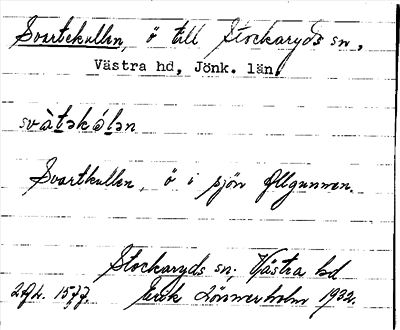 Svartekullen, ö till Stockaryds sn,
Västra hd, Jönk. län
svàt̠əkóḷən
Svartkullen, ö i sjön Allgunnen.
Stockaryds sn. Västra hd
Erik Lönnerholm 1932.